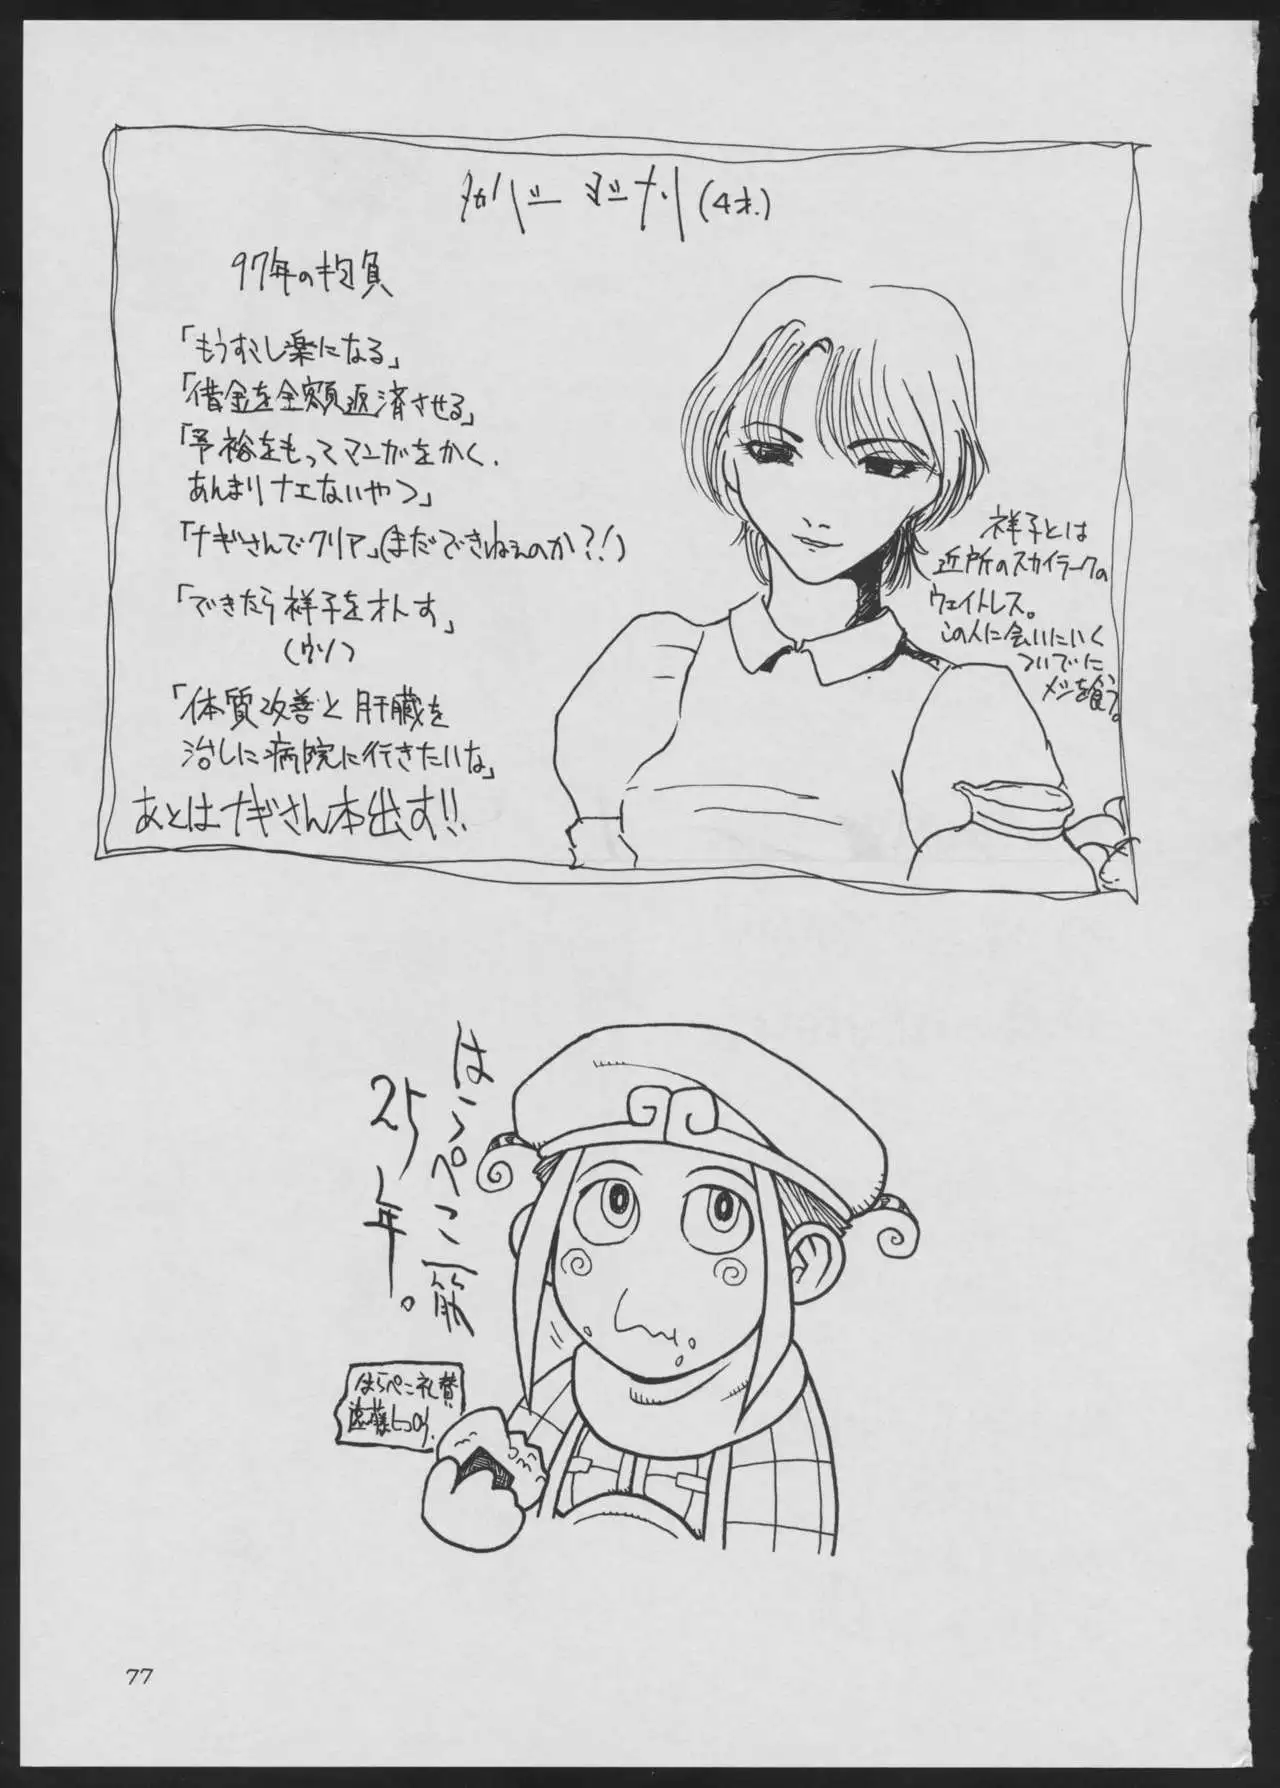 (4才.)
97年の抱負
「もうすこし楽になる」
「借金を全額返済させる」
「予裕をもってマンガをかく.
あんまりナエないやつ」
「ナギさんでクリア」(まだできねぇのか?!)
「できたら祥子をオトす」
(ウソ)
「体質改善と肝臓を
治しに病院に行きたいな」
あとはナギさん本出す!!
祥子とは
近所のスカイラークの
ウェイトレス。
この人に会いにいく
ついでに
メシを食う。
はらぺこ一筋
25年。
はらぺこ礼賛
遠藤
77